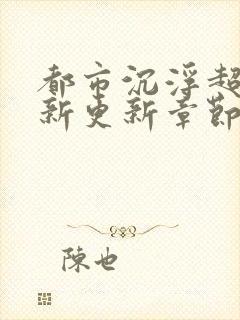 都市沉浮超
新更新章節
陳也